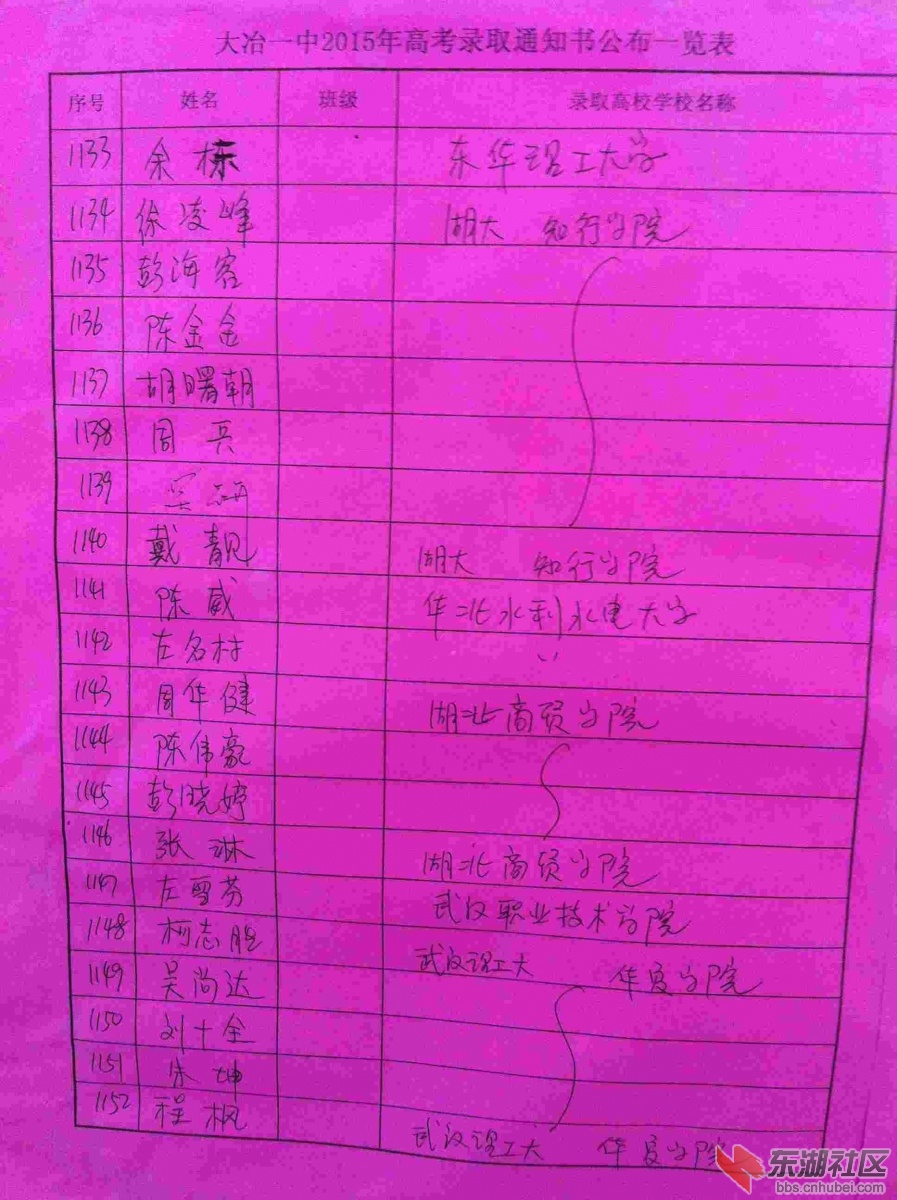 大冶一中2015年高考录取通知书公布一览表
序号 姓名 班级 录取高校学校名称
1133 余栋 东华理工大学
1134 徐凌峰 湖大 知行学院
1135 彭海容
1136 陈金金
1137 胡曙朝
1138 周兵
1139 吴研
1140 戴靓 湖大 知行学院
1141 陈威 华北水利水电大学
1142 左名村 〃
1143 周华健 湖北商贸学院
1144 陈伟豪
1145 彭晓婷
1146 张琳 湖北商贸学院
1147 左雪芬 武汉职业技术学院
1148 柯志胜 武汉理工大 华夏学院
1149 吴尚达
1150 刘十全
1151 朱坤
1152 程枫 武汉理工大 华夏学院
东湖社区
bbs.cnhubei.com